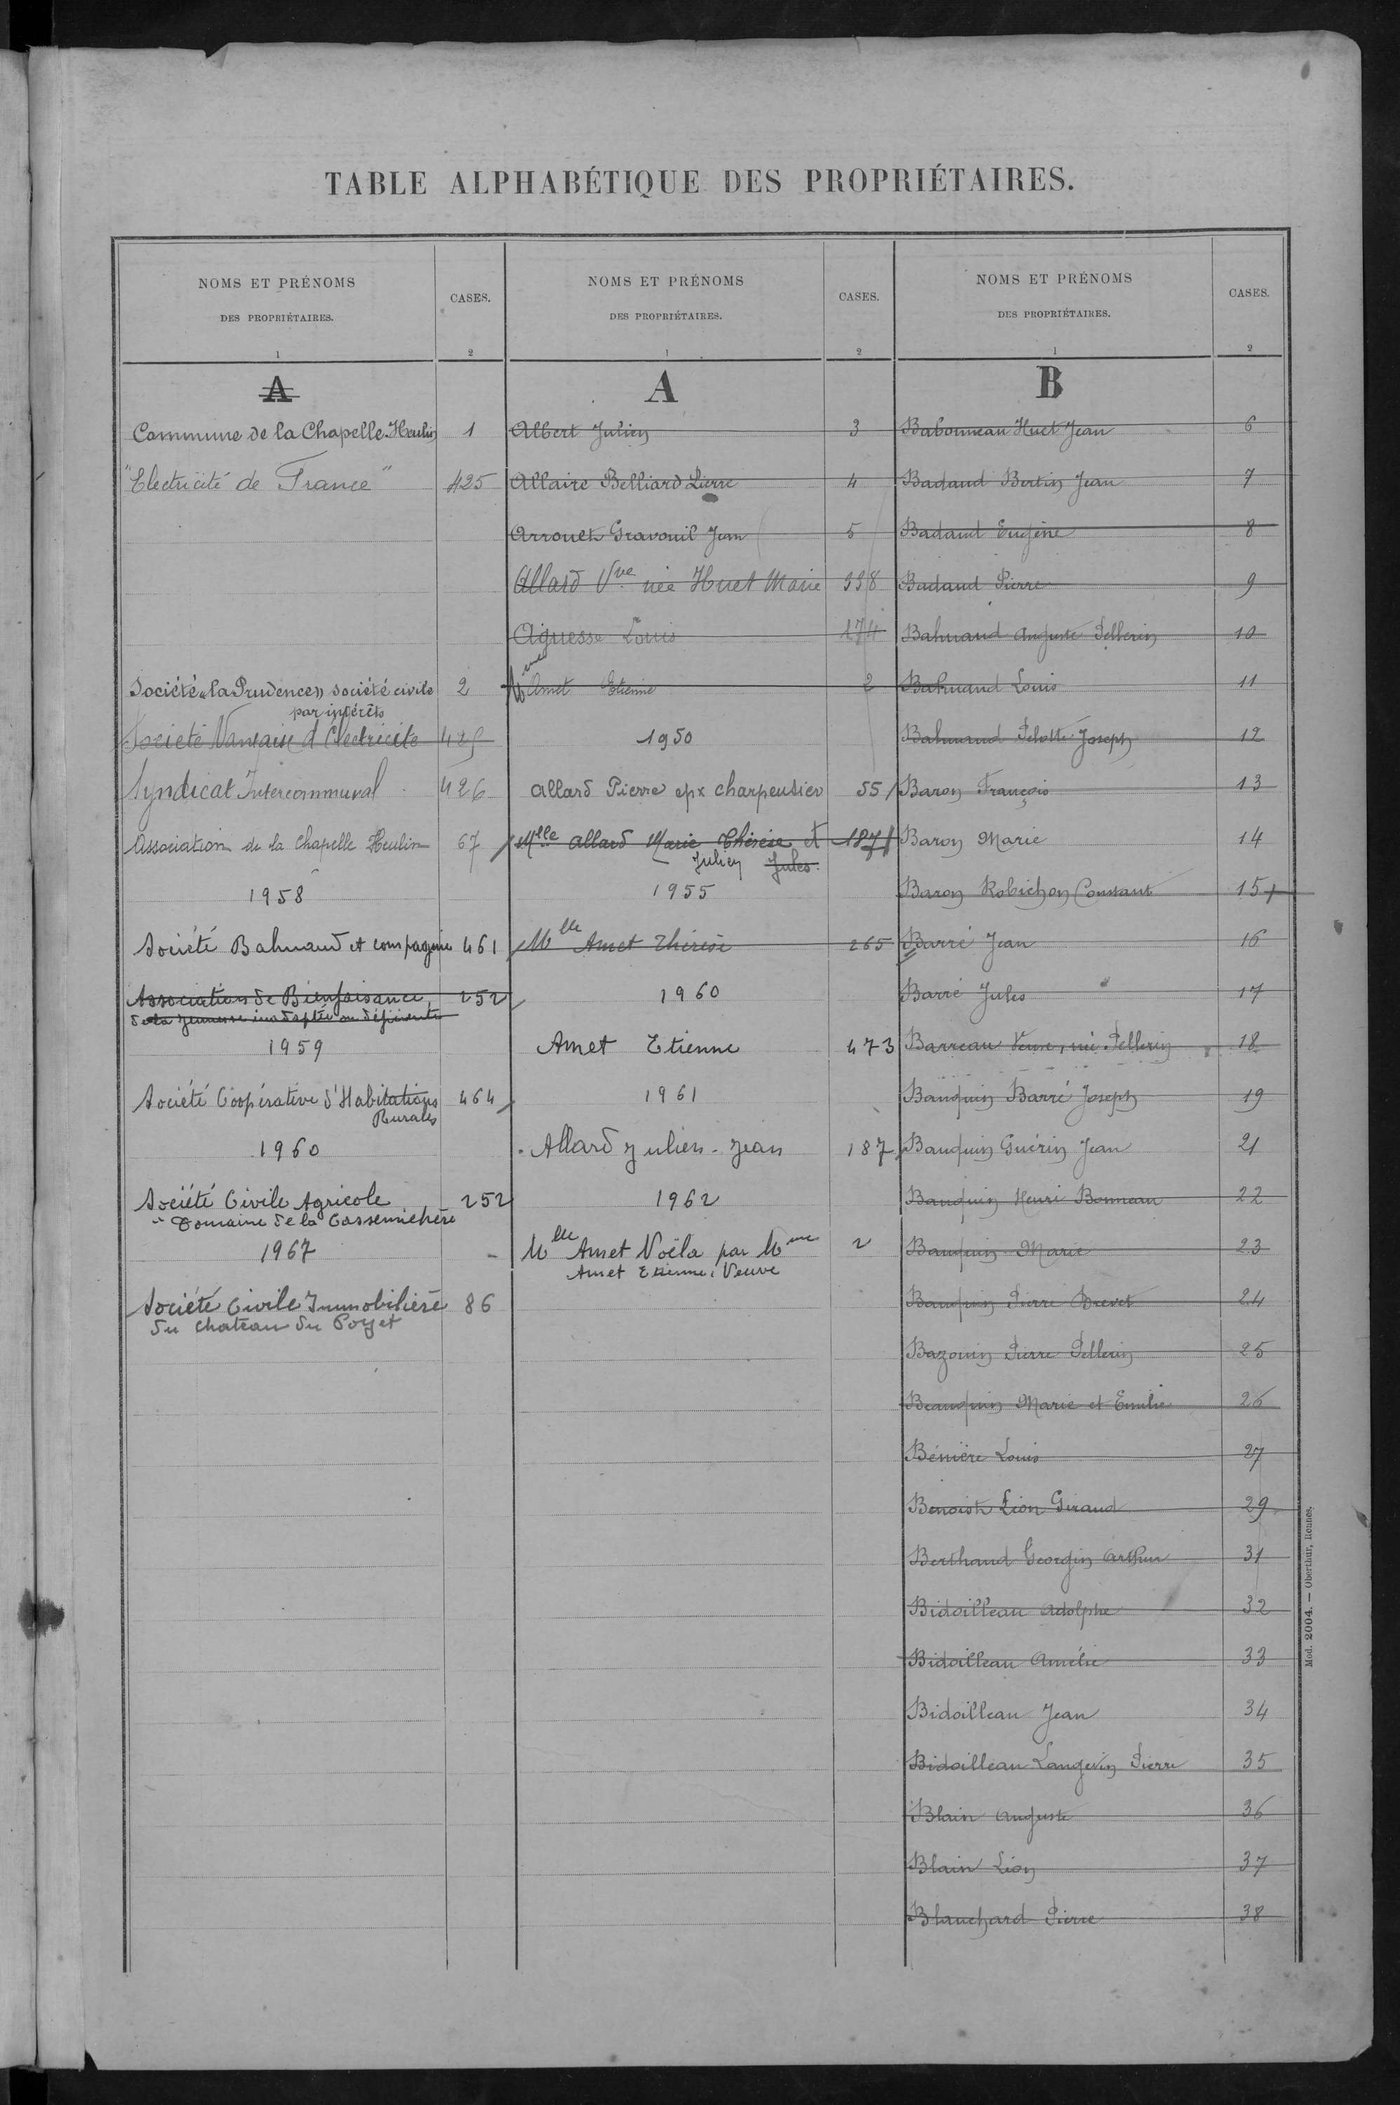 TABLE ALPHABÉTIQUE DES PROPRIÉTAIRES.
NOMS ET PRÉNOMS
DES PROPRIÉTAIRES.
1
CASES.
2
A
Commune de la Chapelle-Heulin 1
"Electricité de France" 425
Société "la Prudence" société civile 2
par intérêts
Société Nantaise d'Electricité 425
Syndicat Intercommunal 426
Association de la Chapelle Heulin 67
1958
Société Bahuaud et compagnie 461
Association de Bienfaisance 252
de la jeunesse inadaptée ou déficiente
1959
Société Coopérative d'Habitations 464
Rurales
1960
Société Civile Agricole 252
"Domaine de la Cassemichère
1967
Société Civile Immobilière 86
du chateau du Poyet
NOMS ET PRÉNOMS
DES PROPRIÉTAIRES.
1
CASES.
2
A
Albert Julien 3
Allaire Belliard Pierre 4
Arrouët Gravouil Jean 5
Allard Vve née Huet Marie 338
Aguesse Louis 174
Amet Etienne 2
1950
Allard Pierre epx Charpentier 55
Mlle Allard Marie Thérèse et 187
Julien Jules
1955
Mlle Amet Thérèse 265
1960
Amet Etienne 473
1961
Allard Julien-Jean 187
1962
Mlle Amet Noëla par Mme 2
Amet Etienne, Veuve
NOMS ET PRÉNOMS
DES PROPRIÉTAIRES.
1
CASES.
2
B
Babonneau Huet Jean 6
Badaud Bertin Jean 7
Badaud Eugène 8
Badaud Pierre 9
Bahuaud Auguste Pellerin 10
Bahuaud Louis 11
Bahuaud Pelotte Joseph 12
Baron François 13
Baron Marie 14
Baron Robichon Constant 15
Barré Jean 16
Barré Jules 17
Barreau Veuve, née Pellerin 18
Bauquin Barré Joseph 19
Bauquin Guérin Jean 21
Bauquin Henri Bonneau 22
Bauquin Marie 23
Bauquin Pierre Brevet 24
Bazouin Pierre Pellerin 25
Beauquin Marie et Emilie 26
Bénière Louis 27
Benoist Léon Giraud 29
Berthaud Georgin Arthur 31
Bidoilleau Adolphe 32
Bidoilleau Amélie 33
Bidoilleau Jean 34
Bidoilleau Langevin Pierre 35
Blain Auguste 36
Blain Léon 37
Blanchard Pierre 38
Mod. 2004. — Oberthur, Rennes.